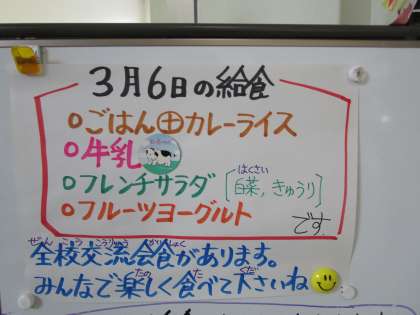 3月6日の給食
ごはん㊉カレーライス
牛乳
フレンチサラダ〔白菜，きゅうり〕
はくさい
フルーツヨーグルト
です
ぜんこうこうりゅうかいしょく
全校交流会食があります。
たのたくだ
みんなで楽しく食べて下さいね